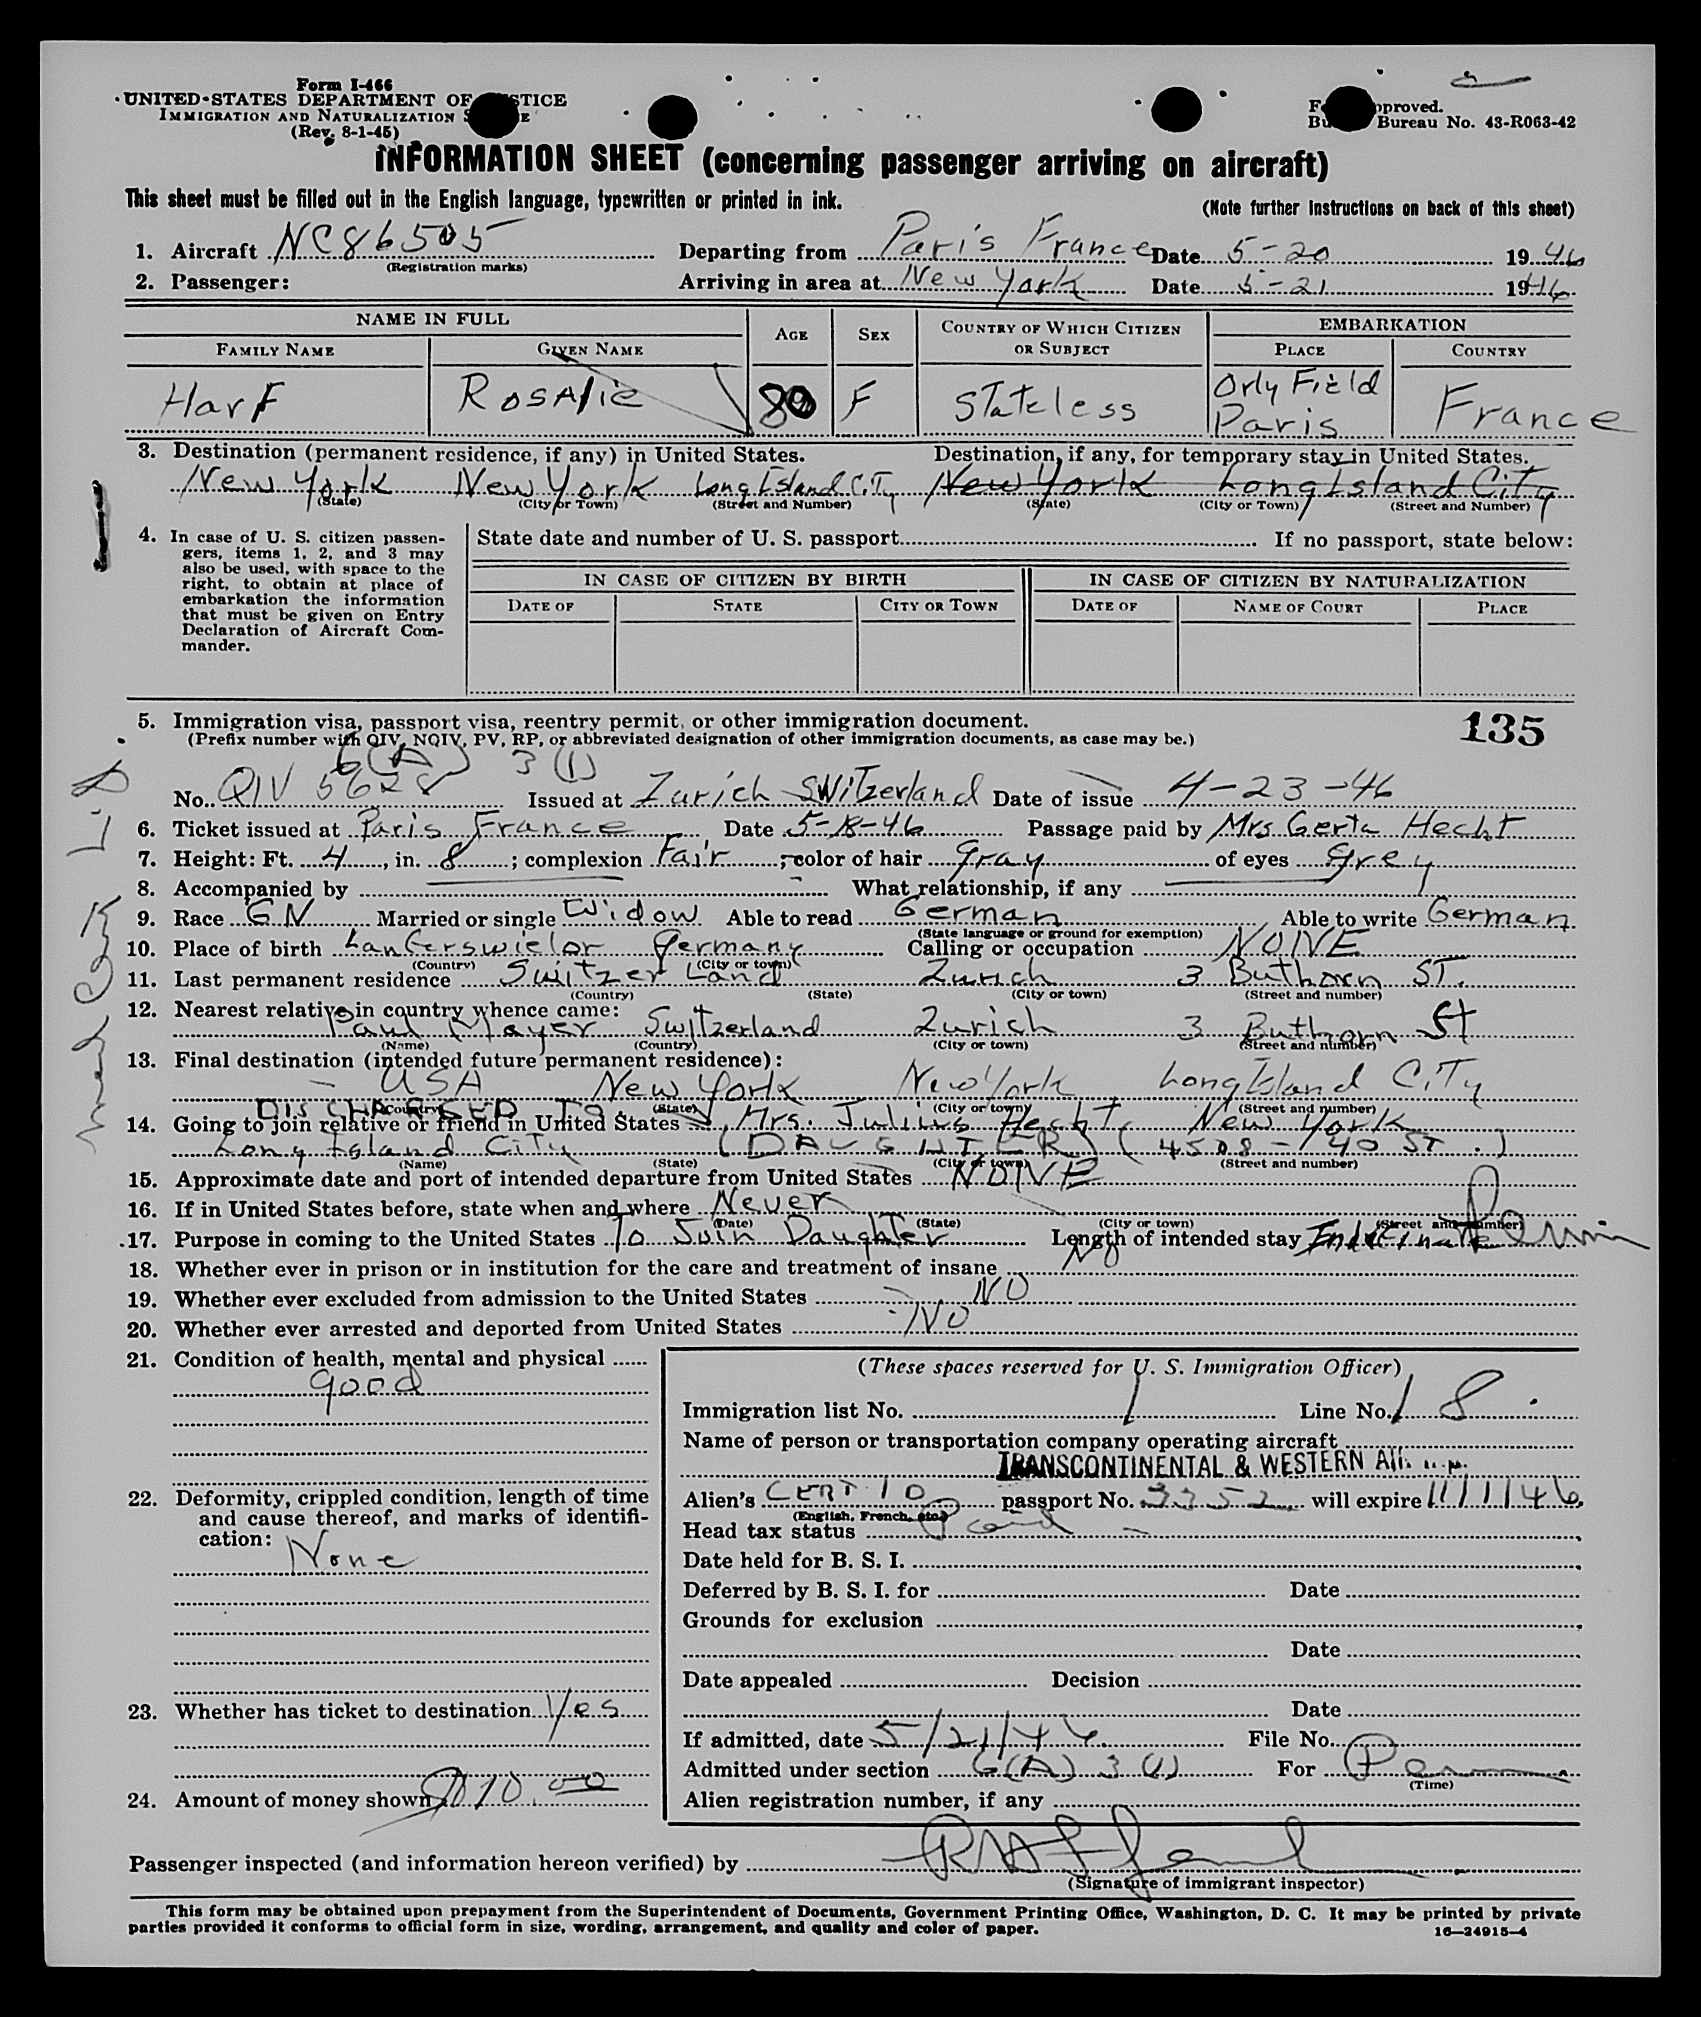 Form I-466
UNITED STATES DEPARTMENT OF JUSTICE
IMMIGRATION AND NATURALIZATION SERVICE
(Rev. 8-1-45)
Form approved.
Budget Bureau No. 43-R063-42
INFORMATION SHEET (concerning passenger arriving on aircraft)
This sheet must be filled out in the English language, typewritten or printed in ink.
(Note further instructions on back of this sheet)
1. Aircraft NC86505 Departing from Paris France Date 5-20 1946
(Registration marks)
2. Passenger: Arriving in area at New York Date 5-21 1946
NAME IN FULL AGE SEX COUNTRY OF WHICH CITIZEN OR SUBJECT EMBARKATION
FAMILY NAME GIVEN NAME PLACE COUNTRY
Harf Rosalie 80 F Stateless Orly Field Paris France
3. Destination (permanent residence, if any) in United States. Destination, if any, for temporary stay in United States.
New York New York Long Island City New York Long Island City
(State) (City or Town) (Street and Number) (State) (City or Town) (Street and Number)
4. In case of U. S. citizen passengers, items 1, 2, and 3 may also be used, with space to the right, to obtain at place of embarkation the information that must be given on Entry Declaration of Aircraft Commander.
State date and number of U. S. passport If no passport, state below:
IN CASE OF CITIZEN BY BIRTH IN CASE OF CITIZEN BY NATURALIZATION
DATE OF STATE CITY OR TOWN DATE OF NAME OF COURT PLACE
5. Immigration visa, passport visa, reentry permit, or other immigration document. 135
(Prefix number with QIV, NQIV, PV, RP, or abbreviated designation of other immigration documents, as case may be.)
6(A) 3(1)
No. QIV 5628 Issued at Zurich Switzerland Date of issue 4-23-46
6. Ticket issued at Paris France Date 5-18-46 Passage paid by Mrs Gerta Hecht
7. Height: Ft. 4, in. 8; complexion Fair; color of hair Gray of eyes Grey
8. Accompanied by What relationship, if any
9. Race G.N. Married or single Widow Able to read German Able to write German
(State language or ground for exemption)
10. Place of birth Germany Calling or occupation NONE
(Country) (City or town)
11. Last permanent residence Switzerland Zurich 3 Buthorn ST.
(Country) (State) (City or town) (Street and number)
12. Nearest relative in country whence came:
Paul Mayer Switzerland Zurich 3 Buthorn St
(Name) (Country) (City or town) (Street and number)
13. Final destination (intended future permanent residence):
USA New York New York Long Island City
(Country) (State) (City or town) (Street and number)
DISCHARGED TO:
14. Going to join relative or friend in United States Mrs. Julius Hecht, New York
Long Island City (DAUGHTER) (4508-40 ST.)
(Name) (State) (City or town) (Street and number)
15. Approximate date and port of intended departure from United States NONE
16. If in United States before, state when and where Never
(Date) (State) (City or town) (Street and number)
17. Purpose in coming to the United States To Join Daughter Length of intended stay
18. Whether ever in prison or in institution for the care and treatment of insane NO
19. Whether ever excluded from admission to the United States NO
20. Whether ever arrested and deported from United States NO
21. Condition of health, mental and physical
good
22. Deformity, crippled condition, length of time and cause thereof, and marks of identification:
None
23. Whether has ticket to destination Yes
24. Amount of money shown $10.00
(These spaces reserved for U. S. Immigration Officer)
Immigration list No. 1 Line No. 18
Name of person or transportation company operating aircraft
TRANSCONTINENTAL & WESTERN
Alien's CERT ID passport No. 3352 will expire 11/1/46
(English, French, etc.)
Head tax status
Date held for B. S. I.
Deferred by B. S. I. for Date
Grounds for exclusion
Date
Date appealed Decision
Date
If admitted, date 5/21/46. File No.
Admitted under section 6(A) 3 (1) For Perm
(Time)
Alien registration number, if any
Passenger inspected (and information hereon verified) by
(Signature of immigrant inspector)
This form may be obtained upon prepayment from the Superintendent of Documents, Government Printing Office, Washington, D. C. It may be printed by private
parties provided it conforms to official form in size, wording, arrangement, and quality and color of paper.
16—24915-4